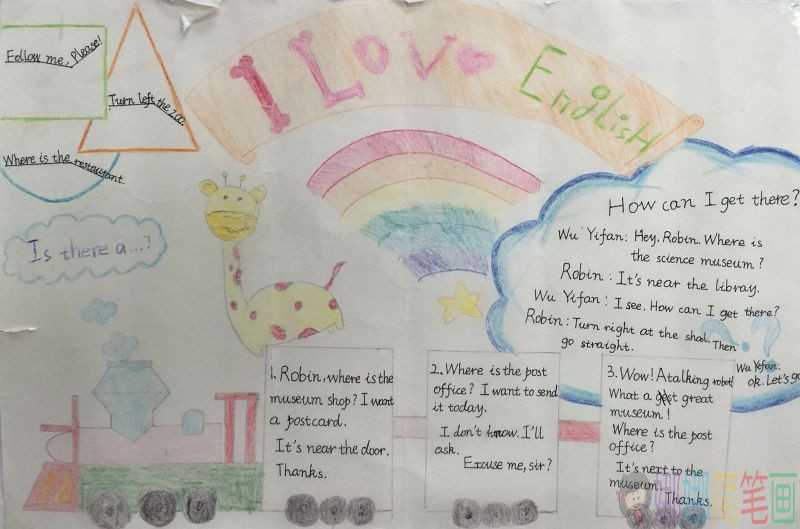 I Love English
Follow me, Please!
Turn left the zoo.
Where is the restaurant.
Is there a...?
How can I get there?
Wu Yifan: Hey, Robin. Where is
the science museum?
Robin: It's near the libray.
Wu Yifan: I see. How can I get there?
Robin: Turn right at the shol. Then
go straight.
Wu Yifan:
ok. Let's go
1. Robin, where is the
museum shop? I want
a postcard.
It's near the door.
Thanks.
2. Where is the post
office? I want to send
it today.
I don't know. I'll
ask.
Excuse me, sir?
3. Wow! Atalking robot!
What a great
museum!
Where is the post
office?
It's next to the
museum.
Thanks.
笔画